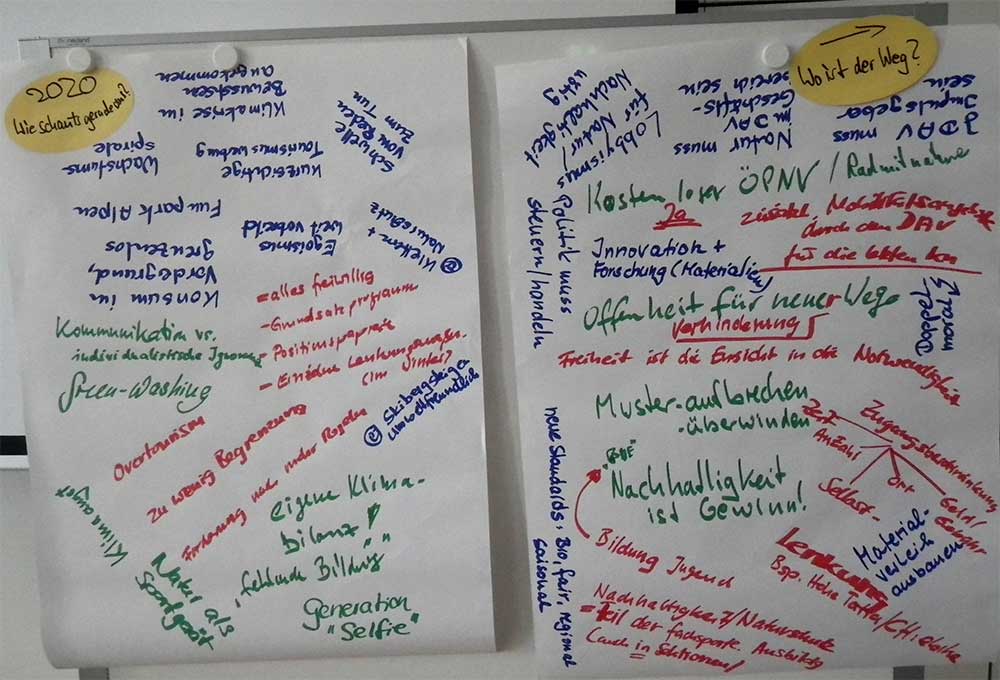 2020
Wie schauts gerade aus?
Klimakrise im
Bewusstsein
angekommen
Schwelle
vom Reden
zum Tun
Wachstums
spirale
Kurzsichtige
Tourismuswerbung
Funpark Alpen
Egoismus
weit verbreitet
Klettern +
Naturschutz
Konsum im
Vordergrund,
grenzenlos
= alles freiwillig
- Grundsatzprogramm
- Positionspapiere
- Einzelne Lenkungsmaßn.
(im Winter)
Kommunikation vs.
individualistische Ignoranz
Green-Washing
Skibergsteigen
umweltfreundlich
Overtourism
zu wenig Begrenzung
Forderung nach mehr Regeln
Klimaangst
Natur als
Sportgerät
eigene Klima-
bilanz!
"fehlende Bildung"
Generation
"Selfie"
Wo ist der Weg?
JDAV muss
Impulsgeber
sein
Natur muss
im DAV
Geschäfts-
bereich sein
Lobbyismus
für Natur/
Nachhaltigkeit
Kostenloser ÖPNV / Radmitnahme
Ja
zusätzl. Mobilitätsangebote
durch den DAV
für die letzten km
Politik muss
steuern/handeln
Innovation +
Forschung (Materialien)
Offenheit für neue Wege
Verhinderung
Freiheit ist die Einsicht in die Notwendigkeit
Muster-aufbrechen
-überwinden
Zugangsbeschränkung
Zeit
Anzahl
Selbst-
Ort
Geld/
"BNE"
Nachhaltigkeit
ist Gewinn!
neue Standards: Bio, fair, regional
saisonal
Bildung Jugend
Material-
verleih
ausbauen
Lenkung
Bsp. Hohe Tatra/
Nachhaltigkeit/Naturschutz
= Teil der fachsportl. Ausbildg
(auch in Sektionen)